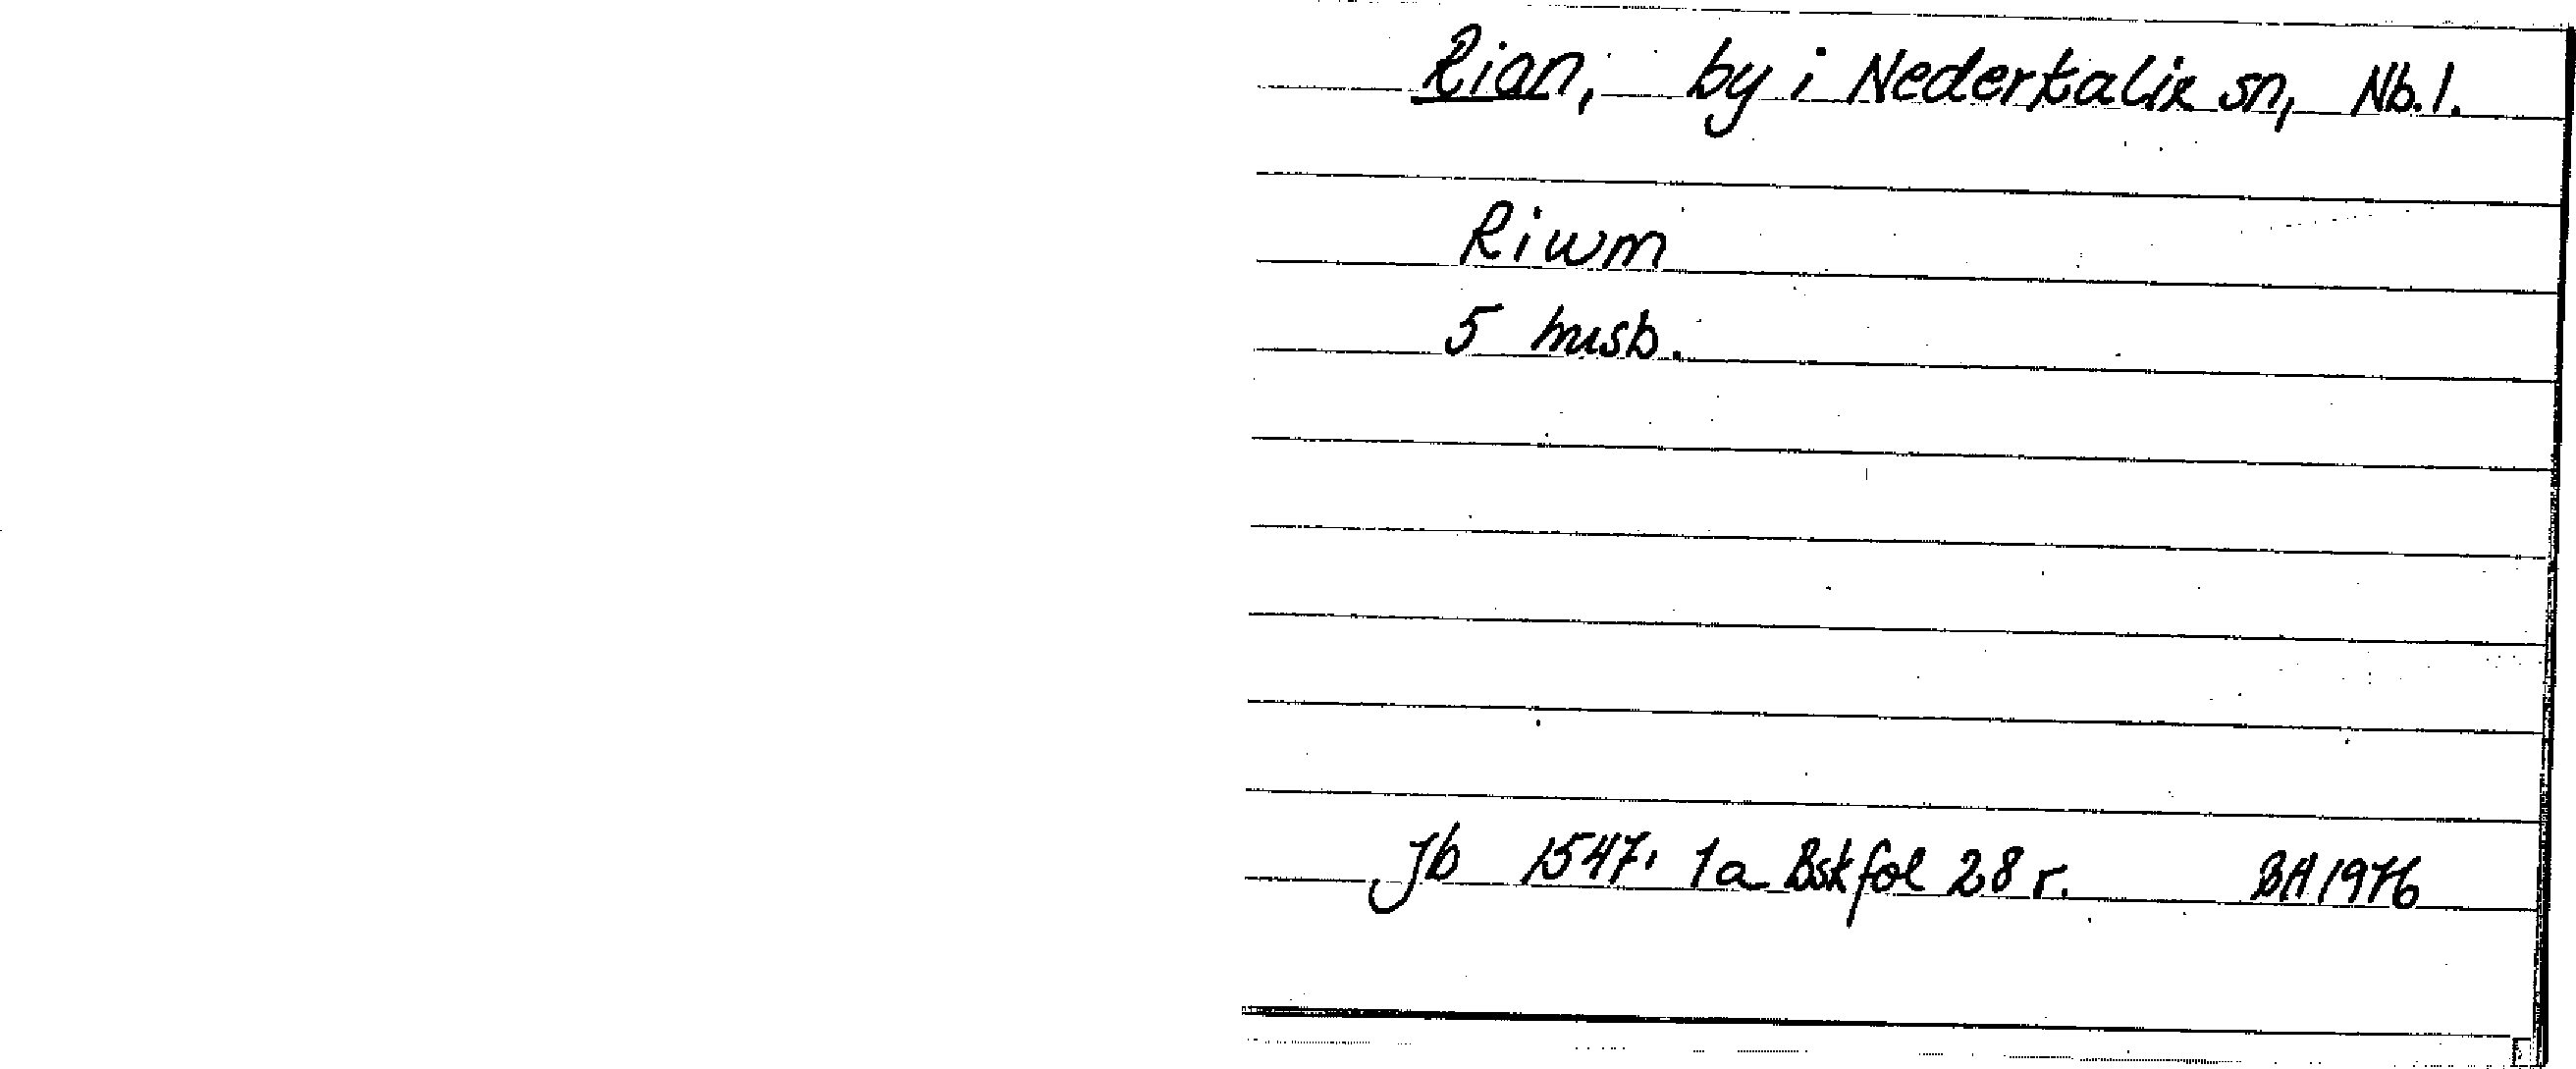 Rian, by i Nederkalix sn, Nb. l.
Riwm
5 husb.
Jb 1547: 1a Bsk fol 28 r. BH 1976